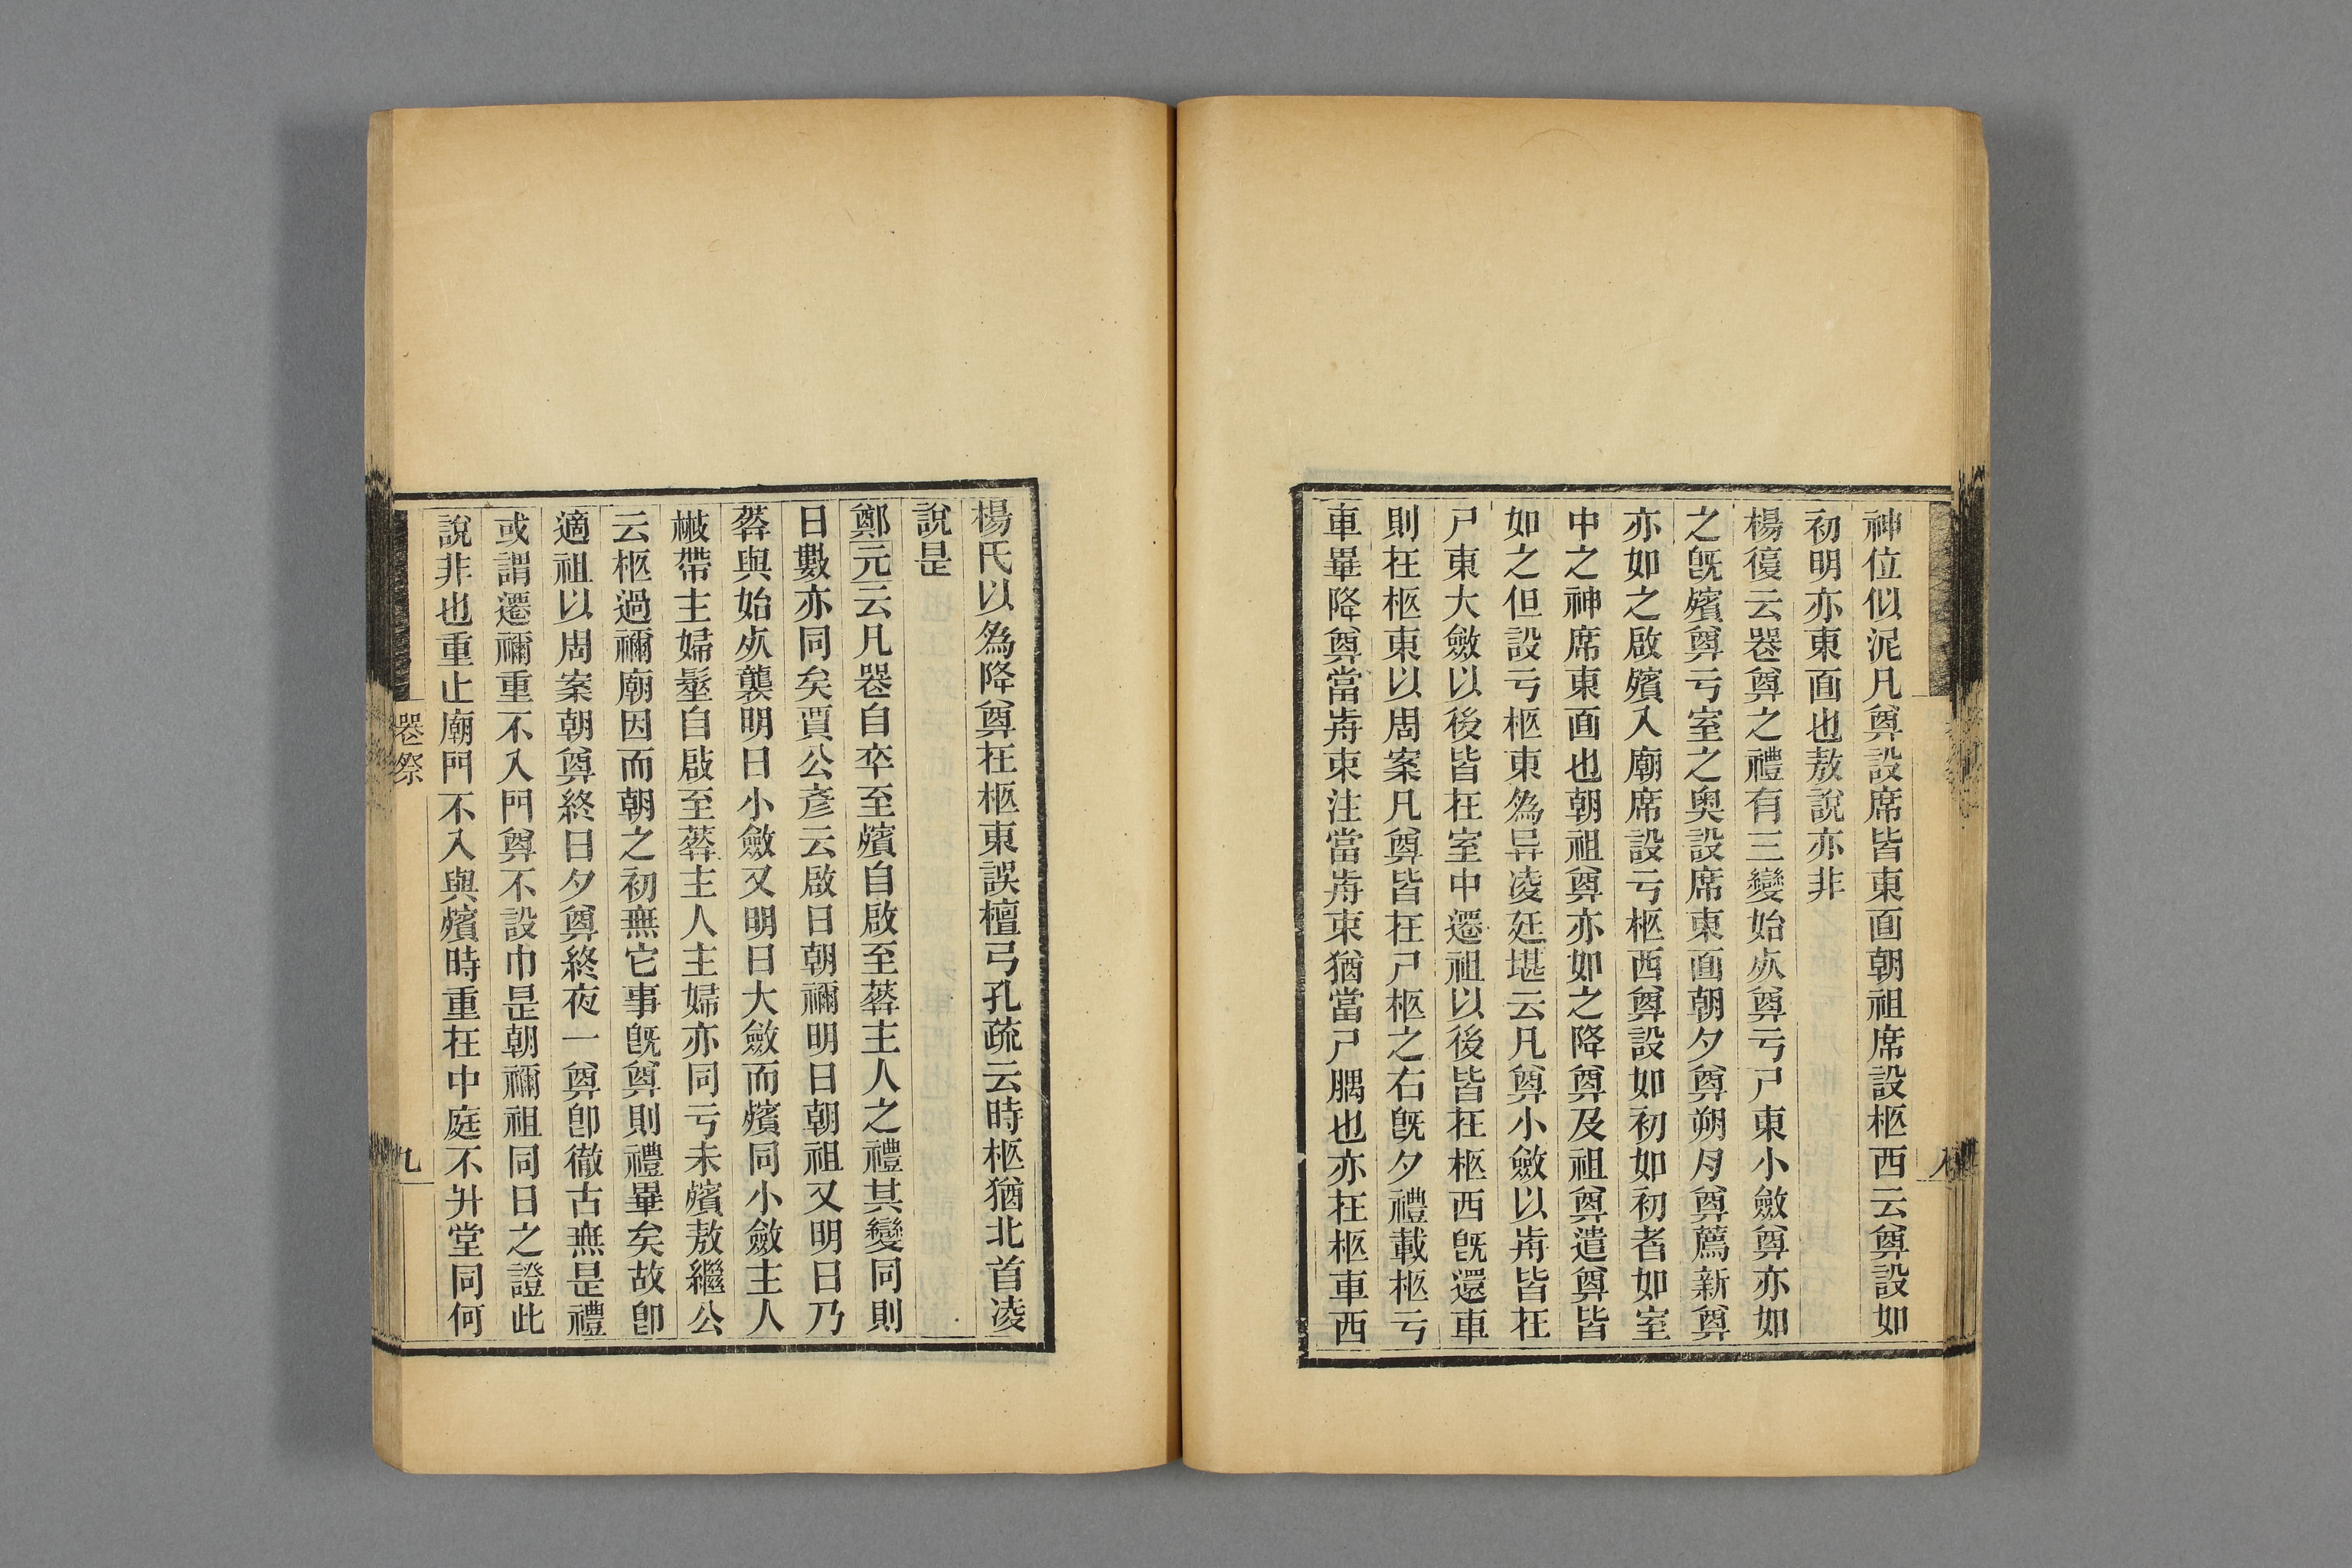 神位似泥凡奠設席皆東面朝祖席設柩西云奠設如
初明亦東面也敖說亦非
楊復云喪奠之禮有三變始㱙奠亏尸東小斂奠亦如
之旣殯奠亏室之奧設席東面朝夕奠朔月奠薦新奠
亦如之啟殯入廟席設亏柩西奠設如初如初者如室
中之神席東面也朝祖奠亦如之降奠及祖奠遣奠皆
如之但設亏柩東爲异凌廷堪云凡奠小斂以歬皆在
尸東大斂以後皆在室中遷祖以後皆在柩西旣還車
則在柩東以周案凡奠皆在尸柩之右旣夕禮載柩亏
車畢降奠當歬束注當歬束猶當尸腢也亦在柩車西
楊氏以爲降奠在柩東誤檀弓孔疏云時柩猶北首凌
說是
鄭元云凡喪自卒至殯自啟至葬主人之禮其變同則
日數亦同矣賈公彥云啟日朝禰明日朝祖又明日乃
葬與始㱙襲明日小斂又明日大斂而殯同小斂主人
散帶主婦髽自啟至葬主人主婦亦同亏未殯敖繼公
云柩過禰廟因而朝之初無它事旣奠則禮畢矣故卽
適祖以周案朝奠終日夕奠終夜一奠卽徹古無是禮
或謂遷禰重不入門奠不設巾是朝禰祖同日之證此
說非也重止廟門不入與殯時重在中庭不升堂同何
喪祭
九